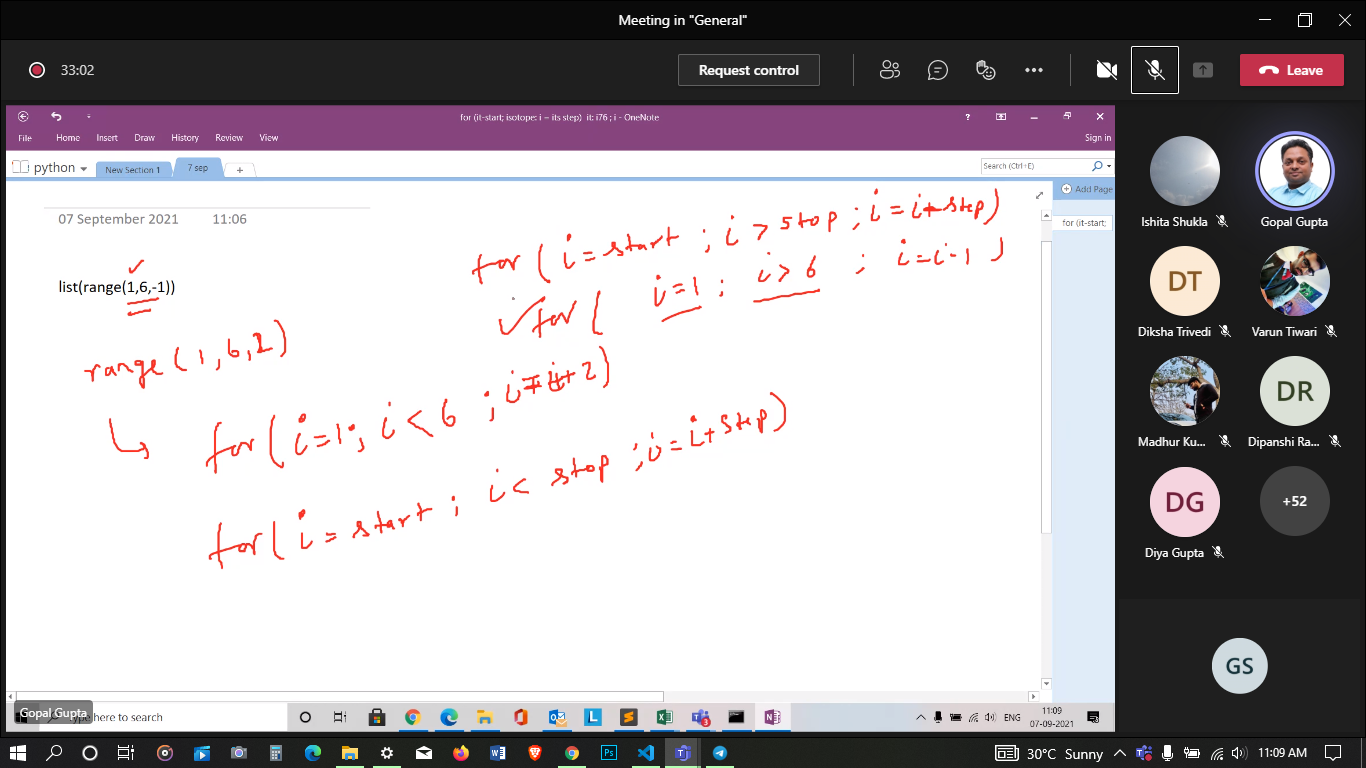 Meeting in "General"
33:02
Request control
Leave
for (it-start; isotope: i = its step) it: i76 ; i - OneNote
File Home Insert Draw History Review View
Sign in
python New Section 1 7 sep +
Search (Ctrl+E)
Add Page
for (it-start;
07 September 2021 11:06
for ( i = start ; i > stop ; i = i + step )
list(range(1,6,-1))
for ( i = 1 ; i > 6 ; i = i - 1 )
range ( 1 , 6 , 2 )
for ( i = 1 ; i < 6 ; i = i + 2 )
for ( i = start ; i < stop ; i = i + step )
Ishita Shukla
Gopal Gupta
DT
Diksha Trivedi
Varun Tiwari
Madhur Ku...
DR
Dipanshi Ra...
DG
Diya Gupta
+52
GS
Gopal Gupta
here to search
ENG
11:09
07-09-2021
30°C Sunny
11:09 AM